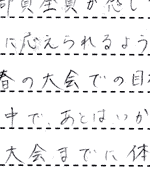 部員全員が
に応えられるよう
春の大会での目
中で、あとはいか
大会までに体